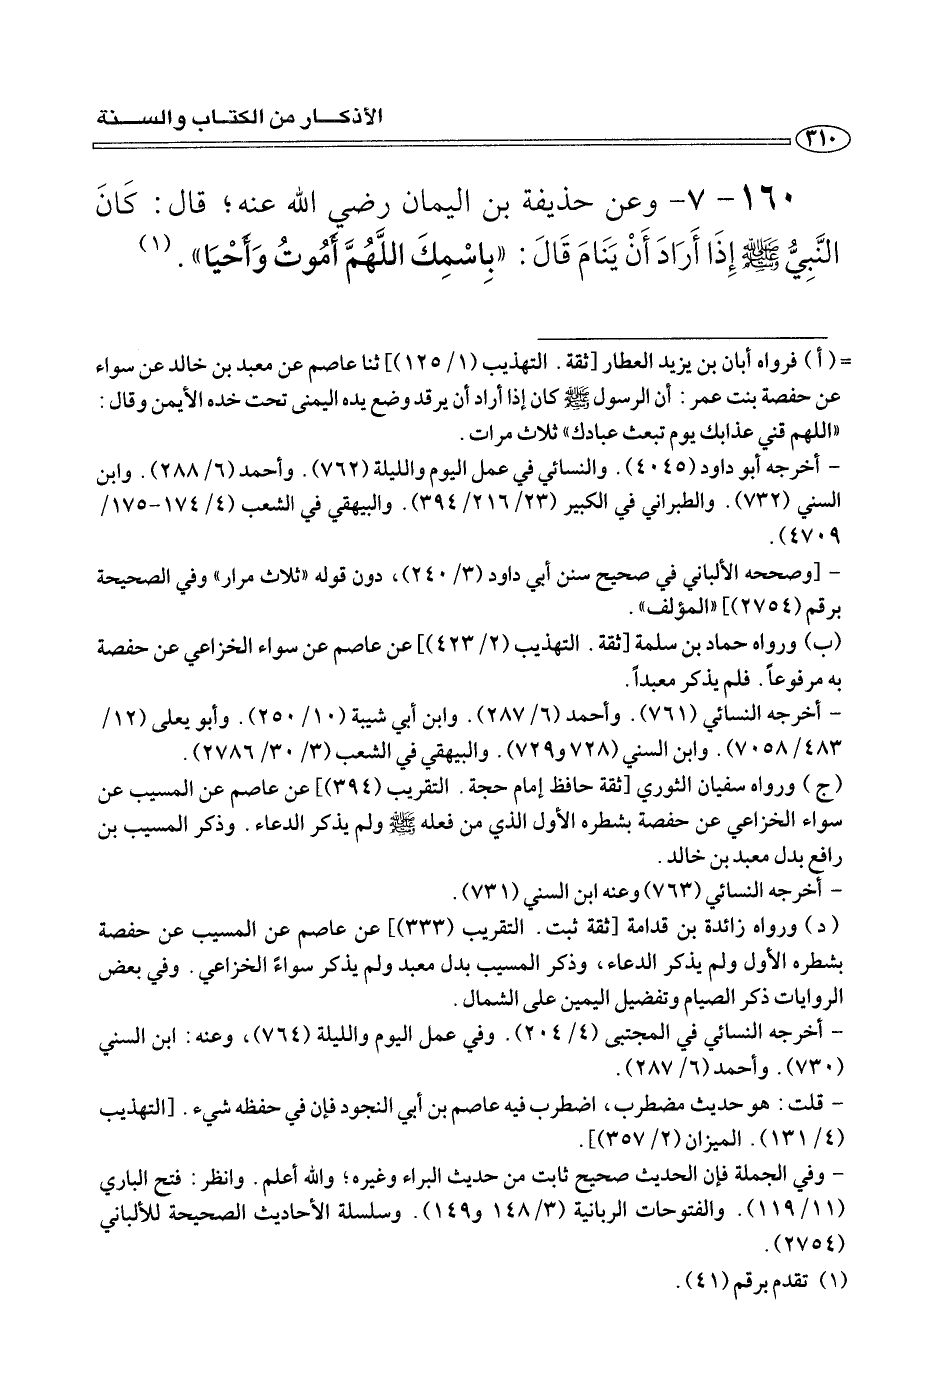 الأذكـــار من الكتـاب والســـنة
٣١٠
١٦٠ - ٧- وعن حذيفة بن اليمان رضي الله عنه؛ قال: كَانَ
النَّبِيُّ ﷺ إِذَا أَرَادَ أَنْ يَنَامَ قَالَ: «بِاسْمِكَ اللَّهُمَّ أَمُوتُ وَأَحْيَا». (١)
=(أ) فرواه أبان بن يزيد العطار [ثقة. التهذيب (١/ ١٢٥)] ثنا عاصم عن معبد بن خالد عن سواء
عن حفصة بنت عمر: أن الرسول ﷺ كان إذا أراد أن يرقد وضع يده اليمنى تحت خده الأيمن وقال:
«اللهم قني عذابك يوم تبعث عبادك» ثلاث مرات.
- أخرجه أبو داود (٤٠٤٥). والنسائي في عمل اليوم والليلة (٧٦٢). وأحمد (٦/ ٢٨٨). وابن
السني (٧٣٢). والطبراني في الكبير (٢٣/ ٢١٦/ ٣٩٤). والبيهقي في الشعب (٤/ ١٧٤-١٧٥/
٤٧٠٩).
- [وصححه الألباني في صحيح سنن أبي داود (٣/ ٢٤٠)، دون قوله «ثلاث مرار» وفي الصحيحة
برقم (٢٧٥٤)] «المؤلف».
(ب) ورواه حماد بن سلمة [ثقة. التهذيب (٢/ ٤٢٣)] عن عاصم عن سواء الخزاعي عن حفصة
به مرفوعاً. فلم يذكر معبداً.
- أخرجه النسائي (٧٦١). وأحمد (٦/ ٢٨٧). وابن أبي شيبة (١٠/ ٢٥٠). وأبو يعلى (١٢/
٤٨٣/ ٧٠٥٨). وابن السني (٧٢٨ و٧٢٩). والبيهقي في الشعب (٣/ ٣٠/ ٢٧٨٦).
(ج) ورواه سفيان الثوري [ثقة حافظ إمام حجة. التقريب (٣٩٤)] عن عاصم عن المسيب عن
سواء الخزاعي عن حفصة بشطره الأول الذي من فعله ﷺ ولم يذكر الدعاء. وذكر المسيب بن
رافع بدل معبد بن خالد.
- أخرجه النسائي (٧٦٣) وعنه ابن السني (٧٣١).
(د) ورواه زائدة بن قدامة [ثقة ثبت. التقريب (٣٣٣)] عن عاصم عن المسيب عن حفصة
بشطره الأول ولم يذكر الدعاء، وذكر المسيب بدل معبد ولم يذكر سواءً الخزاعي. وفي بعض
الروايات ذكر الصيام وتفضيل اليمين على الشمال.
- أخرجه النسائي في المجتبى (٤/ ٢٠٤). وفي عمل اليوم والليلة (٧٦٤)، وعنه: ابن السني
(٧٣٠). وأحمد (٦/ ٢٨٧).
- قلت: هو حديث مضطرب، اضطرب فيه عاصم بن أبي النجود فإن في حفظه شيء. [التهذيب
(٤/ ١٣١). الميزان (٢/ ٣٥٧)].
- وفي الجملة فإن الحديث صحيح ثابت من حديث البراء وغيره؛ والله أعلم. وانظر: فتح الباري
(١١/ ١١٩). والفتوحات الربانية (٣/ ١٤٨ و١٤٩). وسلسلة الأحاديث الصحيحة للألباني
(٢٧٥٤).
(١) تقدم برقم (٤١).